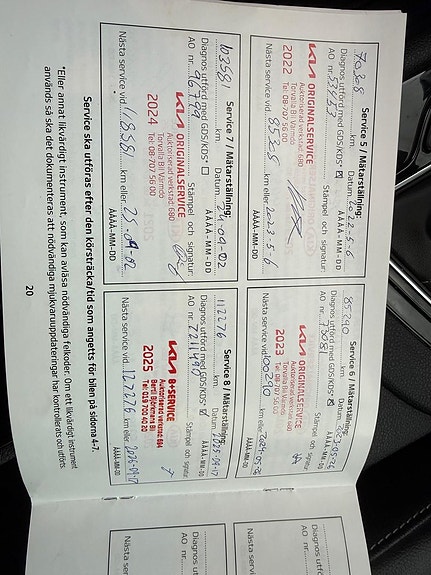 Service 5 / Mätarställning:
70308 km. Datum: 2022-5-6
ÅÅÅÅ-MM-DD
Diagnos utförd med GDS/KDS* ☑
AO nr. Stämpel och signatur:
KIA ORIGINALSERVICE
Auktoriserad verkstad 680
Torvalla Bil Värmdö
Tel: 08-707 56 00
2022
Nästa service vid 85308 km eller 2023-5-6
ÅÅÅÅ-MM-DD
Service 6 / Mätarställning:
85290 km. Datum:
ÅÅÅÅ-MM-DD
Diagnos utförd med GDS/KDS* ☒
AO nr. 73081 Stämpel och signatur:
KIA ORIGINALSERVICE
Auktoriserad verkstad 680
Torvalla Bil Värmdö
Tel: 08-707 56 00
2023
Nästa service vid 100290 km eller
ÅÅÅÅ-MM-DD
Service 7 / Mätarställning:
103581 km. Datum: 24-09-02
ÅÅÅÅ-MM-DD
Diagnos utförd med GDS/KDS* ☐
AO nr. 96199 Stämpel och signatur:
KIA ORIGINALSERVICE
Auktoriserad verkstad 680
Torvalla Bil Värmdö
Tel: 08-707 56 00
2024
Nästa service vid 118581 km eller 25-09-02
ÅÅÅÅ-MM-DD
Service 8 / Mätarställning:
112276 km. Datum: 2025-09-17
ÅÅÅÅ-MM-DD
Diagnos utförd med GDS/KDS* ☑
AO nr. 721490 Stämpel och signatur:
KIA B+SERVICE
Auktoriserad verkstad: 694
Bertil Börtemans Bil
2025
Nästa service vid 127276 km eller 2026-09-17
ÅÅÅÅ-MM-DD
Service ska utföras efter den körsträcka/tid som angetts för bilen på sidorna 4-7.
*Eller annat likvärdigt instrument, som kan avläsa nödvändiga felkoder. Om ett likvärdigt instrument
används så ska det dokumenteras att nödvändiga mjukvaruuppdateringar har kontrollerats och utförts.
20
Diagnos utf
AO nr.
Nästa service
Diagnos
AO nr.
Nästa s